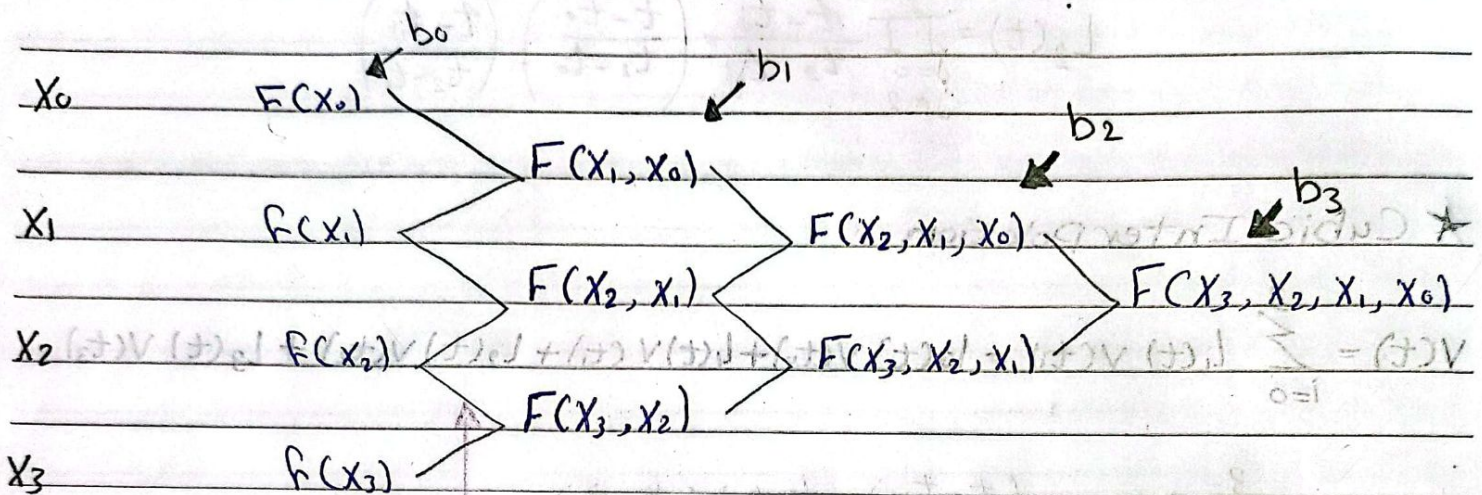 b0
b1
X0 F(X0)
b2
F(X1, X0)
b3
X1 f(X1) F(X2, X1, X0)
F(X2, X1) F(X3, X2, X1, X0)
X2 f(X2) F(X3, X2, X1)
F(X3, X2)
X3 f(X3)